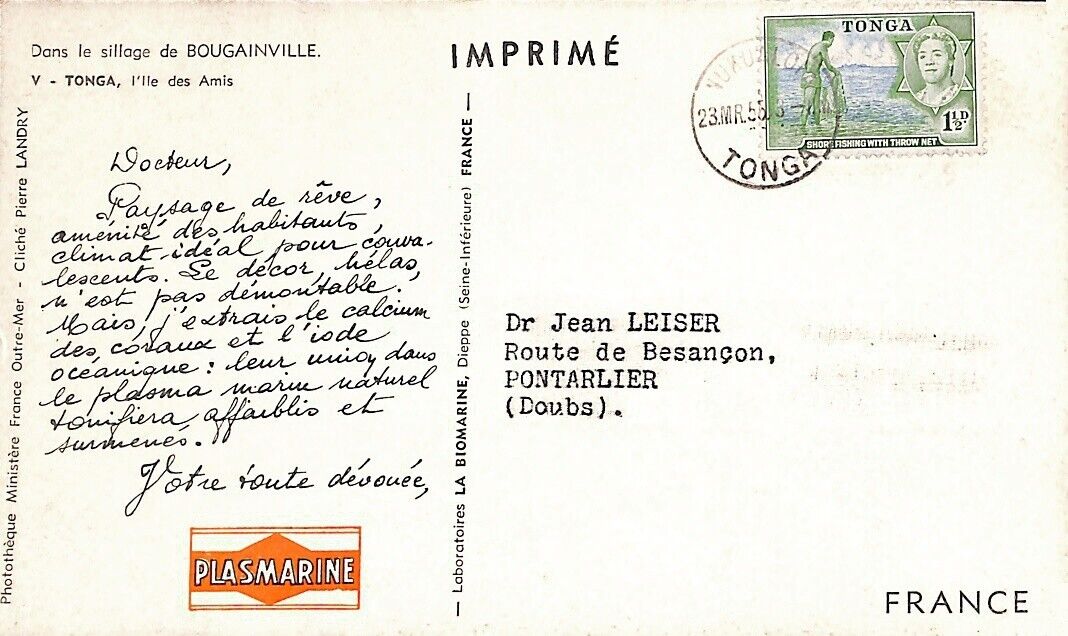 Dans le sillage de BOUGAINVILLE.
V - TONGA, l'Ile des Amis
Docteur,
Paysage de rêve,
aménité des habitants,
climat idéal pour conva-
lescents. Le décor, hélas,
n'est pas démontable.
Mais, j'extrais le calcium
des coraux et l'iode
océanique : leur union dans
le plasma marin naturel
tonifiera affaiblis et
surmenés.
Votre toute dévouée,
PLASMARINE
Photothèque Ministère France Outre-Mer - Cliché Pierre LANDRY
— Laboratoires LA BIOMARINE, Dieppe (Seine-Inférieure) FRANCE —
IMPRIMÉ
TONGA
1½D.
SHORE FISHING WITH THROW NET
23.MR.55
TONGA
Dr Jean LEISER
Route de Besançon,
PONTARLIER
(Doubs).
FRANCE